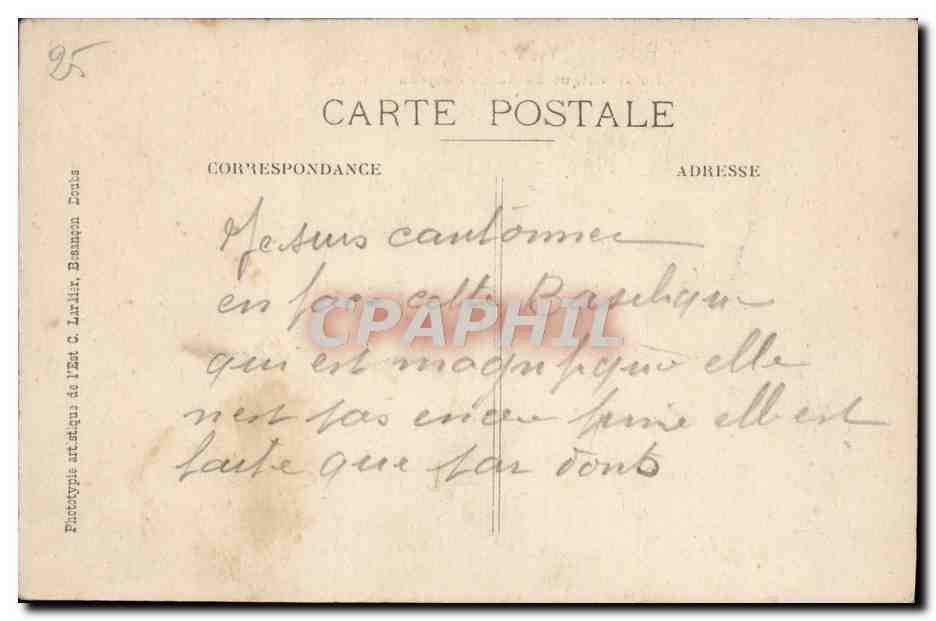 25
CARTE POSTALE
CORRESPONDANCE ADRESSE
Je suis cantonnee
en face cette Baselique
qui est magnifique elle
nest pas encore finie elle est
faite que par dons
Phototypie artistique de l'Est C. Lardier, Besançon Doubs
CPAPHIL